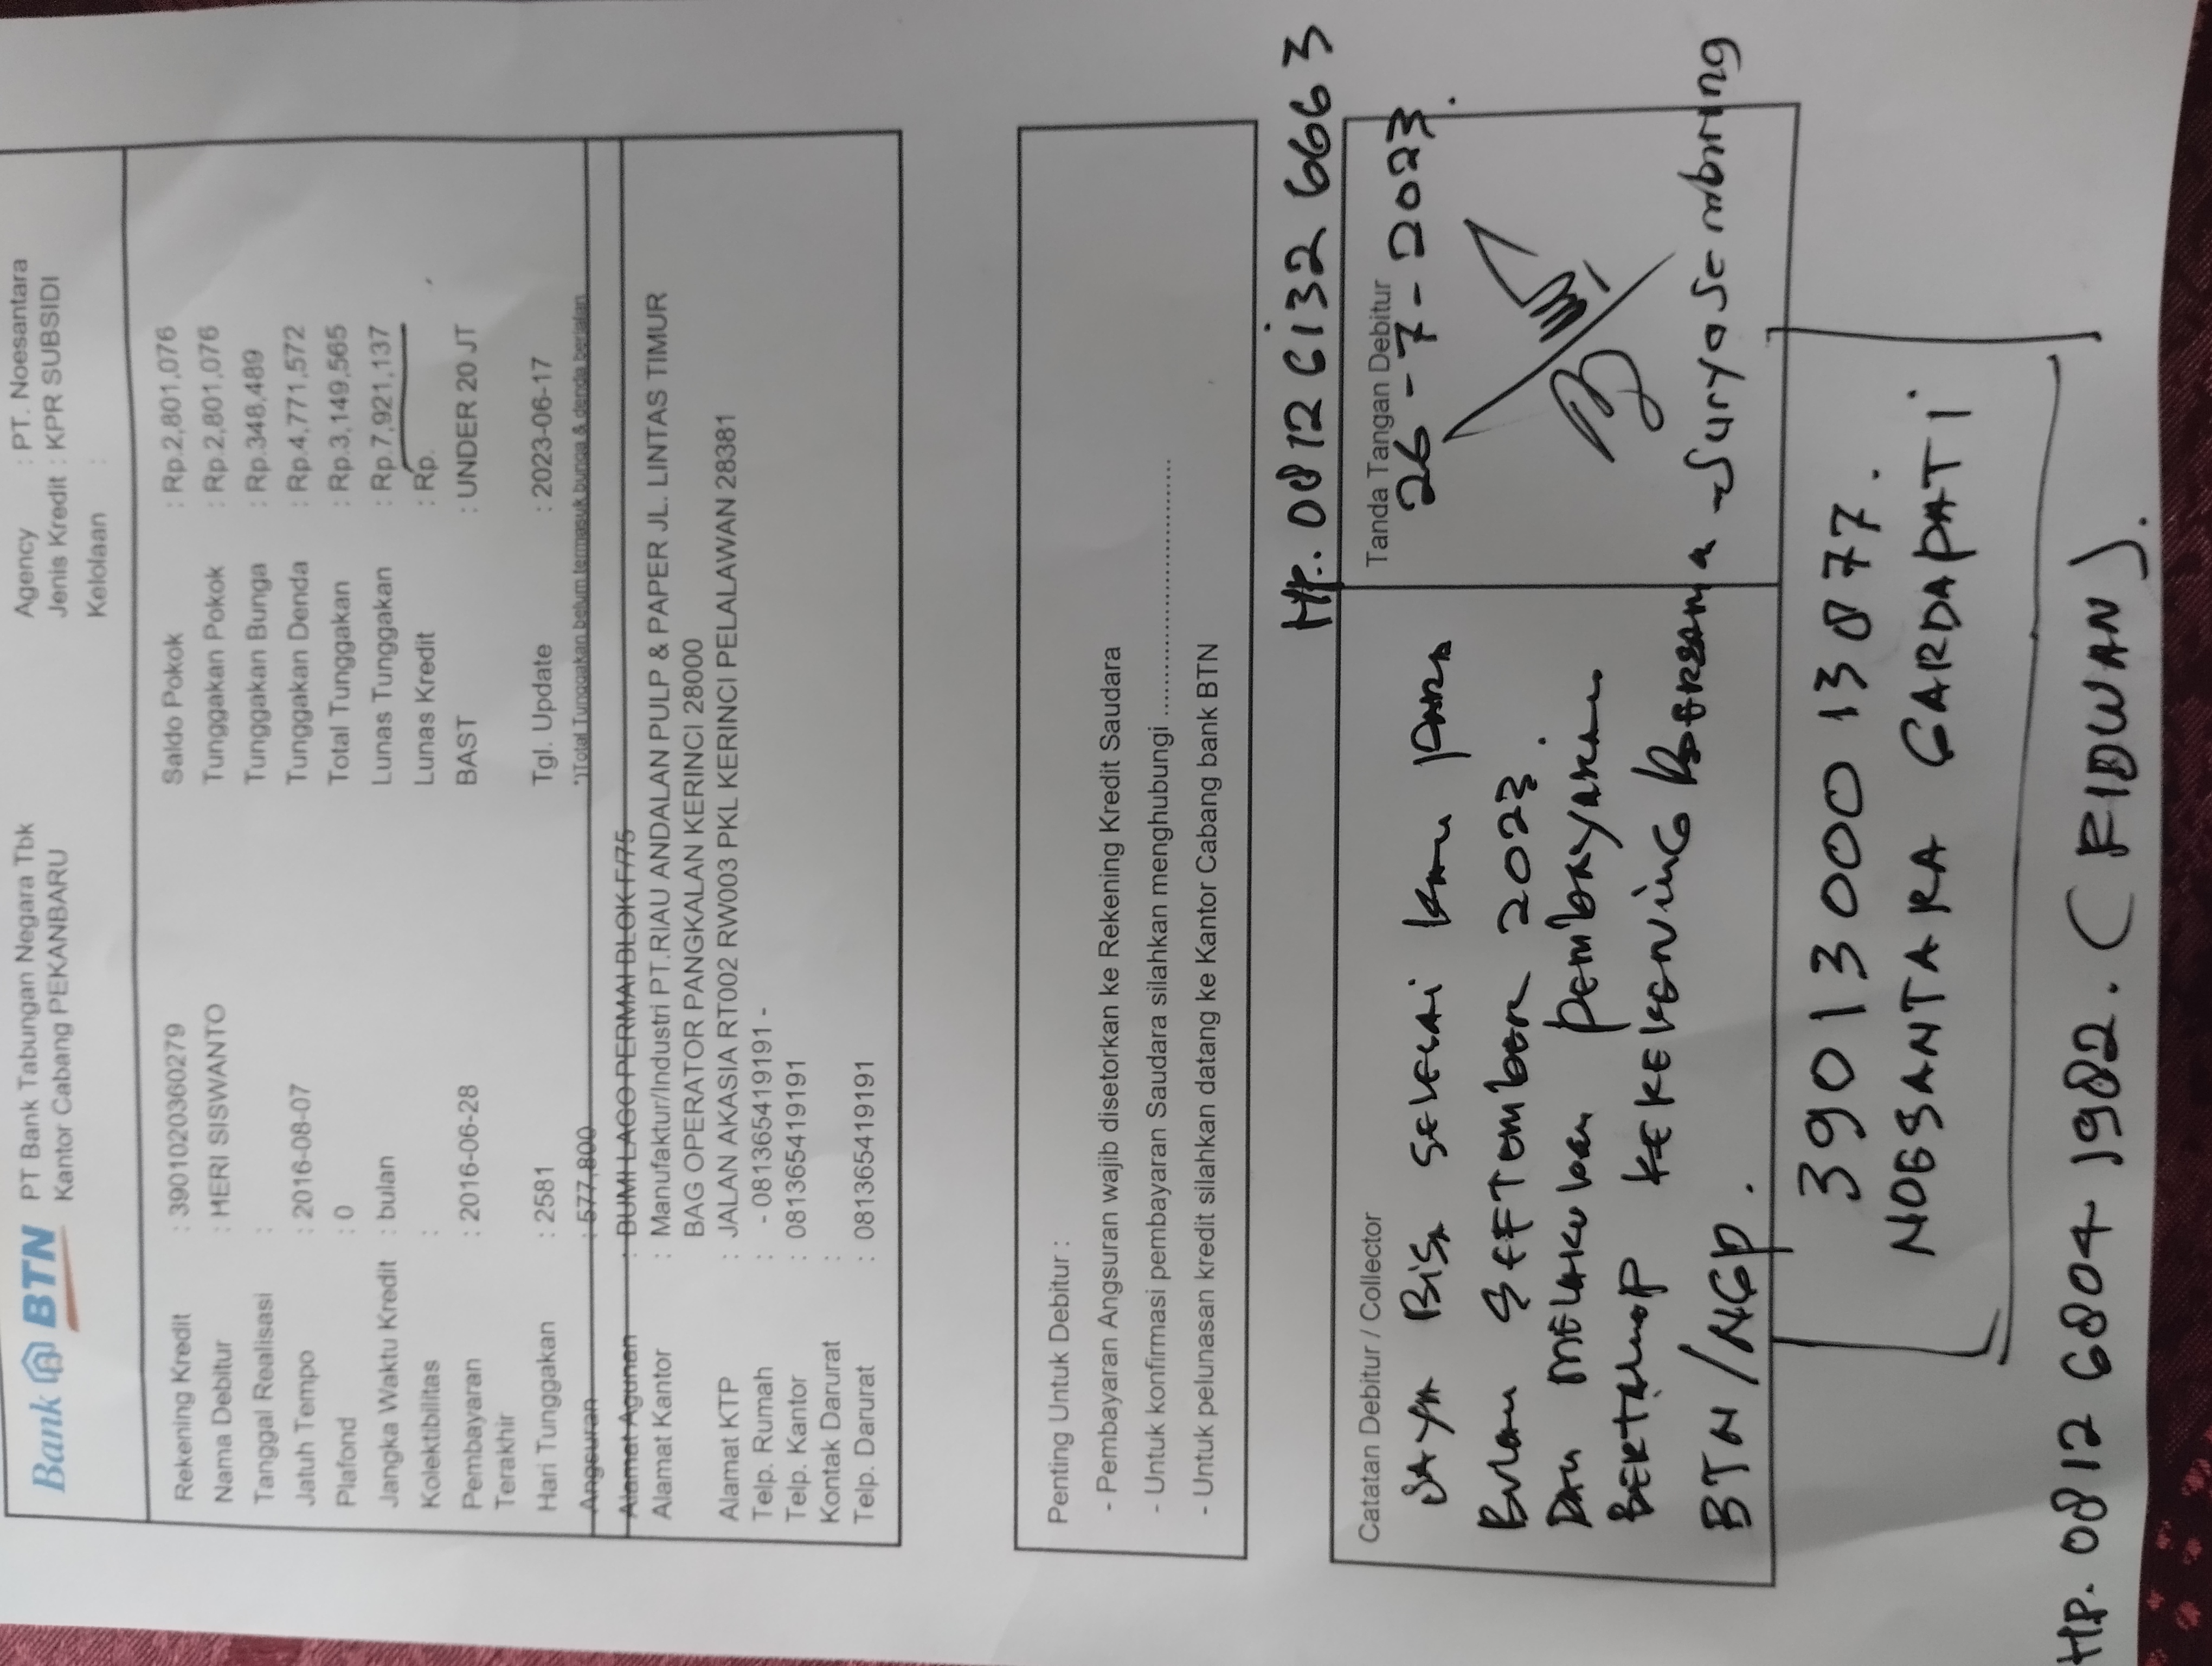 Bank BTN
PT Bank Tabungan Negara Tbk
Kantor Cabang PEKANBARU
Agency : PT. Noesantara
Jenis Kredit : KPR SUBSIDI
Kelolaan :
Rekening Kredit : 3901020360279
Nama Debitur : HERI SISWANTO
Tanggal Realisasi :
Jatuh Tempo : 2016-08-07
Plafond : 0
Jangka Waktu Kredit : bulan
Kolektibilitas :
Pembayaran Terakhir : 2016-06-28
Hari Tunggakan : 2581
Angsuran : 577,800
Saldo Pokok : Rp.2,801,076
Tunggakan Pokok : Rp.2,801,076
Tunggakan Bunga : Rp.348,489
Tunggakan Denda : Rp.4,771,572
Total Tunggakan : Rp.3,149,565
Lunas Tunggakan : Rp.7,921,137
Lunas Kredit : Rp.
BAST : UNDER 20 JT
Tgl. Update : 2023-06-17
*)Total Tunggakan belum termasuk bunga & denda berjalan
Alamat Agunan : BUMI LAGO PERMAI BLOK F/75
Alamat Kantor : Manufaktur/Industri PT.RIAU ANDALAN PULP & PAPER JL. LINTAS TIMUR
BAG OPERATOR PANGKALAN KERINCI 28000
Alamat KTP : JALAN AKASIA RT002 RW003 PKL KERINCI PELALAWAN 28381
Telp. Rumah : - 081365419191 -
Telp. Kantor : 081365419191
Kontak Darurat :
Telp. Darurat : 081365419191
Penting Untuk Debitur :
- Pembayaran Angsuran wajib disetorkan ke Rekening Kredit Saudara
- Untuk konfirmasi pembayaran Saudara silahkan menghubungi ..............................
- Untuk pelunasan kredit silahkan datang ke Kantor Cabang bank BTN
Hp. 0812 6132 6663
Catatan Debitur / Collector
SAYA BiSA SELESAi kan PADA
BULAN SEPTEMBER 2023.
DAN MELAKUKAN PEMBAYARAN
BERTAHAP KE REKENING
BTN/NGP.
Tanda Tangan Debitur
26-7-2023.
Suryo Sembiring
39013 000 13 077.
NOESANTARA GARDAPATI
HP. 0812 6804 1982. (FIDWAN).